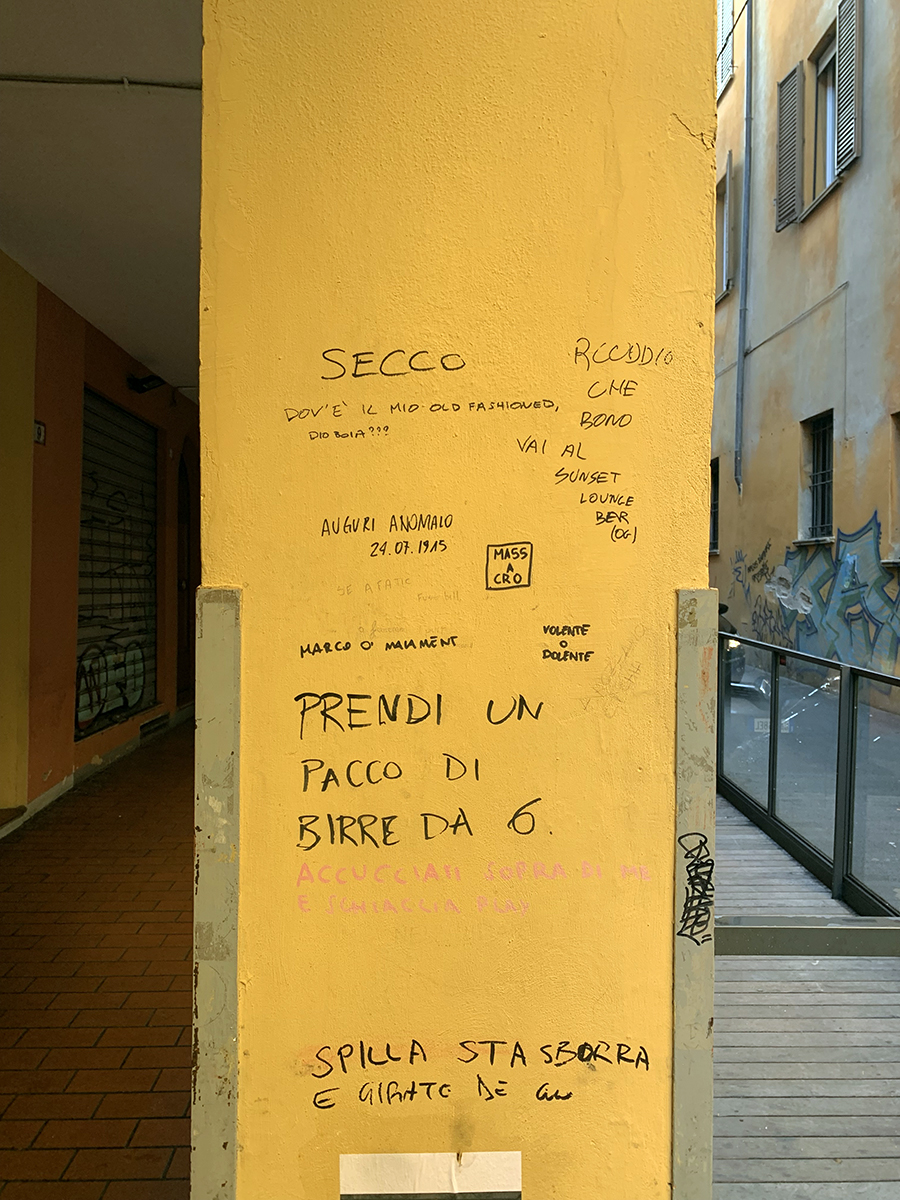 SECCO
DOV'È IL MIO OLD FASHIONED,
DIO BOIA???
CHE
BONO
VAI AL
SUNSET
LOUNGE
BER
(OG)
AUGURI ANOMALO
24.07.1915
MASS
A
CRO
SE
MARCO O'
VOLENTE
O
DOLENTE
PRENDI UN
PACCO DI
BIRRE DA 6.
ACCUCCIATI SOPRA DI ME
E SCHIACCIA PLAY
SPILLA STA SBORRA
E
9